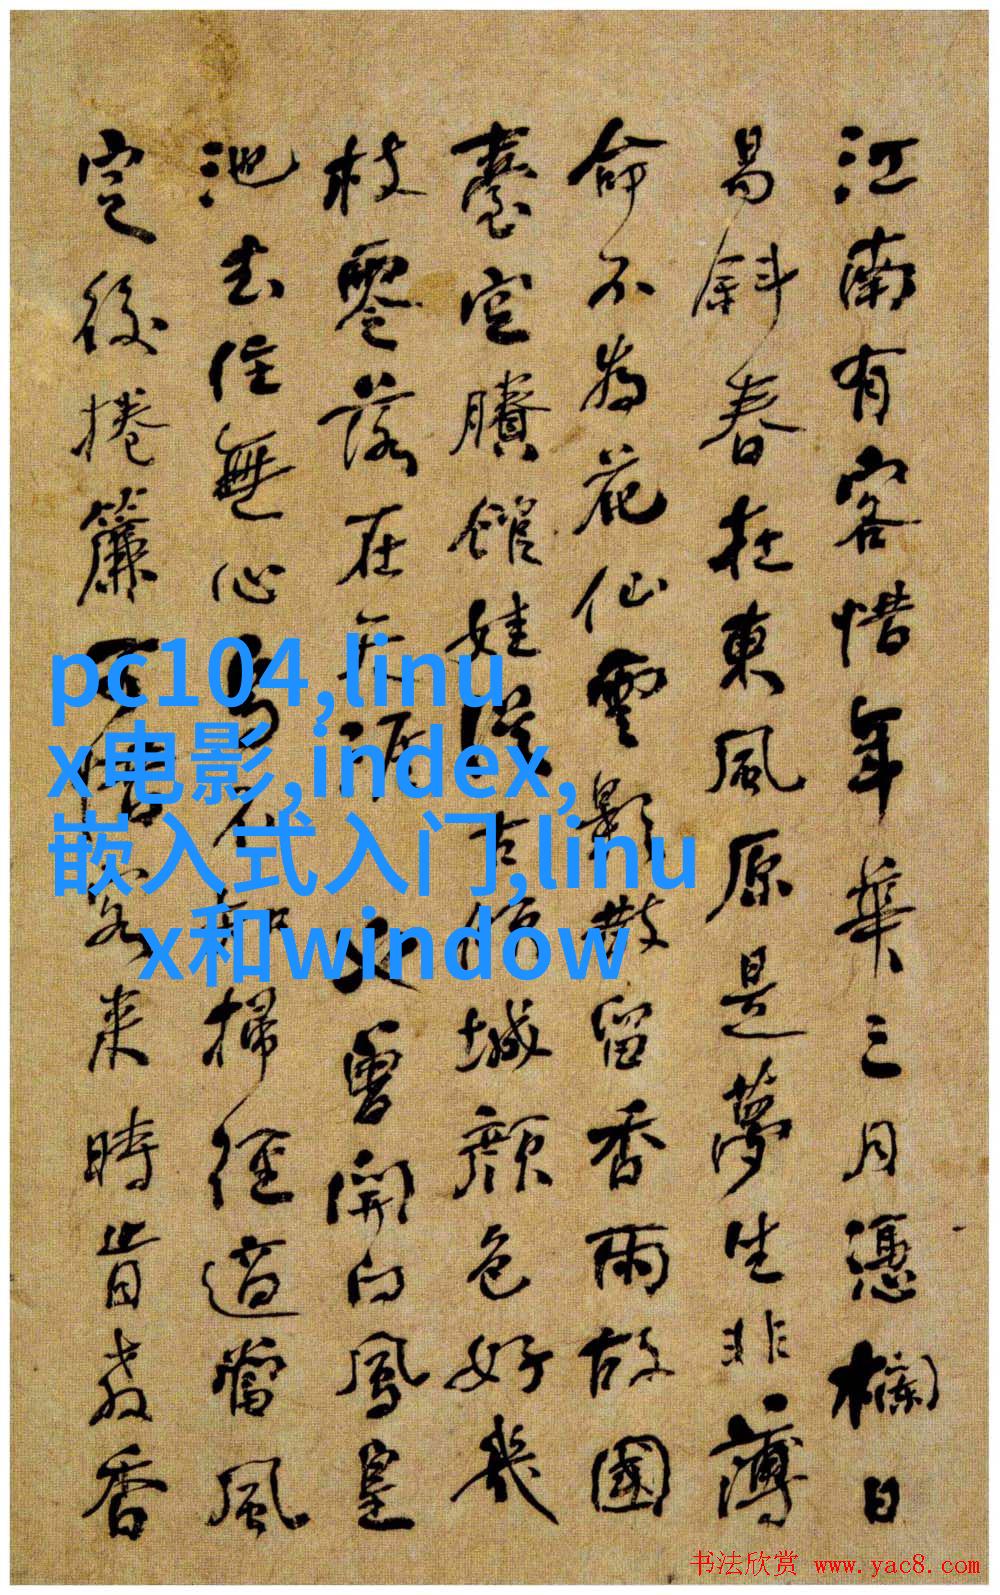 江南有客惜年華三月憑欄日
易斜春在東風原是夢生非薄
命不為花仙雲影散留香雨故國
臺空賸館娃從古傾城顏色好幾
枝零落在天涯又曾開向鳳皇
池去住無心不知掃徑適當風
定後捲簾可惜客來時肯教香
pc104,linu
x电影,index,
嵌入式入门,linu
x和window
书法欣赏 www.yac8.com